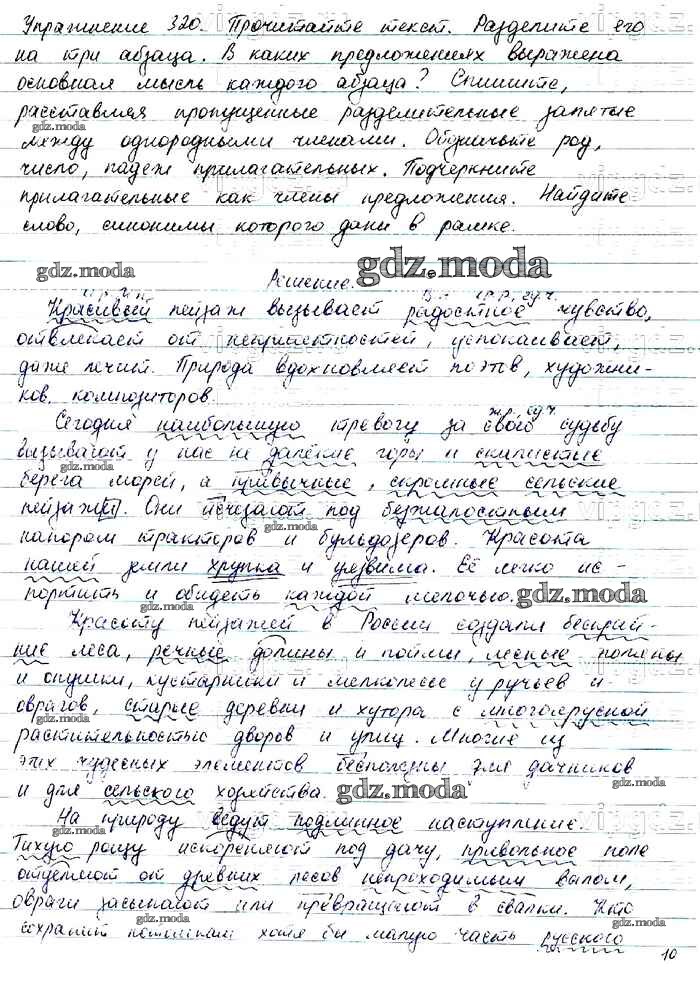 Упражнение 320. Прочитайте текст. Разделите его
на три абзаца. В каких предложениях выражена
основная мысль каждого абзаца? Спишите,
расставляя пропущенные разделительные запятые
gdz.moda
между однородными членами. Обозначьте род,
число, падеж прилагательных. Подчеркните
прилагательные как члены предложения. Найдите
слово, синонимы которого даны в рамке.
gdz.moda
Решение.
gdz.moda
Красивый пейзаж вызывает радостное чувство,
отвлекает от неприятностей, успокаивает,
даже лечит. Природа вдохновляет поэтов, художни-
ков, композиторов.
gdz.moda
ж.р., ед.ч.
Сегодня наибольшую тревогу за свою судьбу
вызывают у нас не далёкие горы и скалистые
gdz.moda
берега морей, а привычные, скромные сельские
пейзажи. Они исчезают под безжалостным
gdz.moda
напором тракторов и бульдозеров. Красота
нашей земли хрупка и уязвима. Её легко ис-
портить и обидеть каждой мелочью.
gdz.moda
gdz.moda
Красоту пейзажей в России создали бескрай-
ние леса, речные долины и поймы, лесные поляны
gdz.moda
и опушки, кустарники и мелколесье у ручьев и
оврагов, старые деревни и хутора с многоярусной
gdz.moda
растительностью дворов и улиц. Многие из
этих чудесных элементов бесполезны для дачников
gdz.moda
и для сельского хозяйства.
gdz.moda
На природу ведут подлинное наступление.
gdz.moda
Тихую рощу искореняют под дачу, привольное поле
отделяют от древних лесов непроходимым валом,
gdz.moda
овраги засыпают или превращают в свалки. Кто
gdz.moda
сохранит потомкам хотя бы малую часть русского
gdz.moda
10